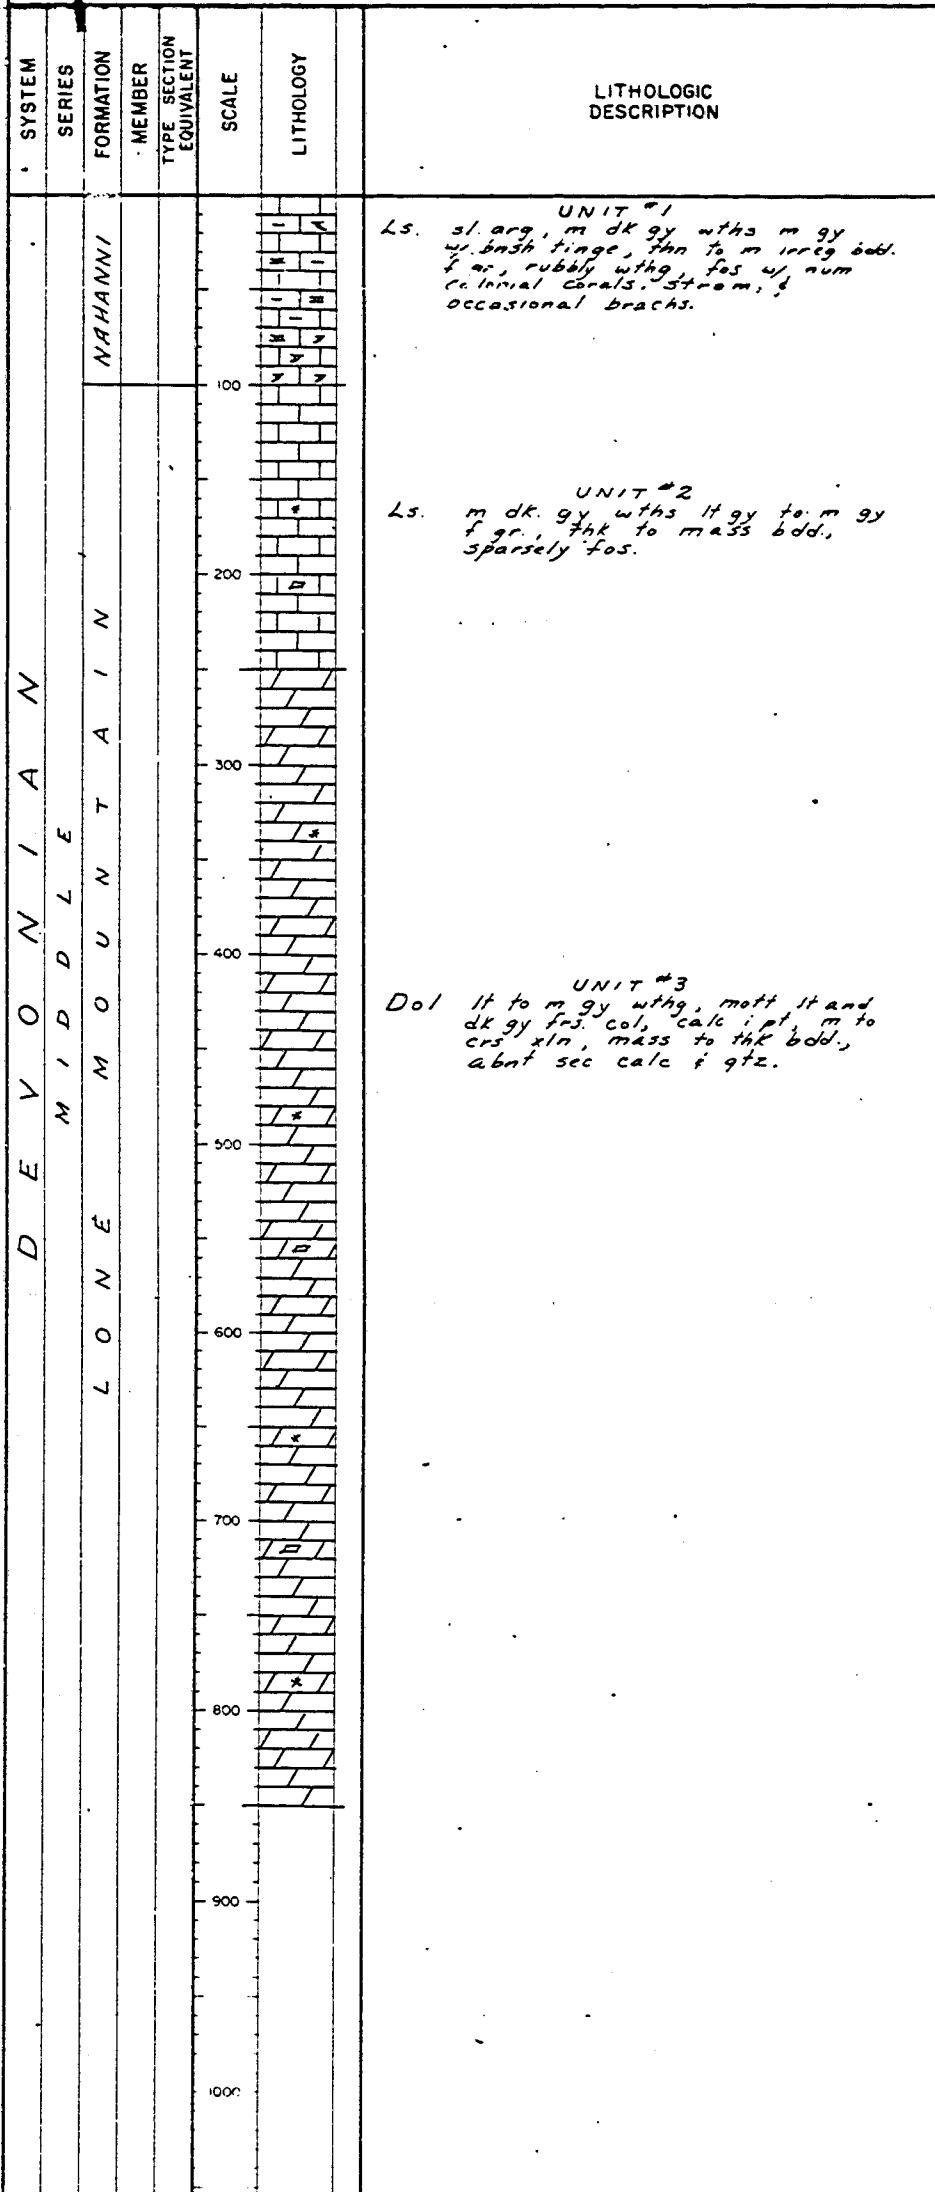 SYSTEM
SERIES
FORMATION
MEMBER
TYPE SECTION
EQUIVALENT
SCALE
LITHOLOGY
LITHOLOGIC
DESCRIPTION
DEVONIAN
MIDDLE
NAHANNI
LONE MOUNTAIN
UNIT #1
Ls. sl. arg, m dk gy wths m gy
w/ bnsh tinge, thn to m irreg bdd.
f gr, rubbly wthg, fos w/ num
colonial corals, strom, &
occasional brachs.
100
UNIT #2
Ls. m dk. gy wths lt gy to m gy
f gr., thk to mass bdd.,
sparsely fos.
200
300
400
UNIT #3
Dol lt to m gy wthg, mott lt and
dk gy frs. col, calc i pt, m to
crs xln, mass to thk bdd.,
abnt sec calc & qtz.
500
600
700
800
900
1000